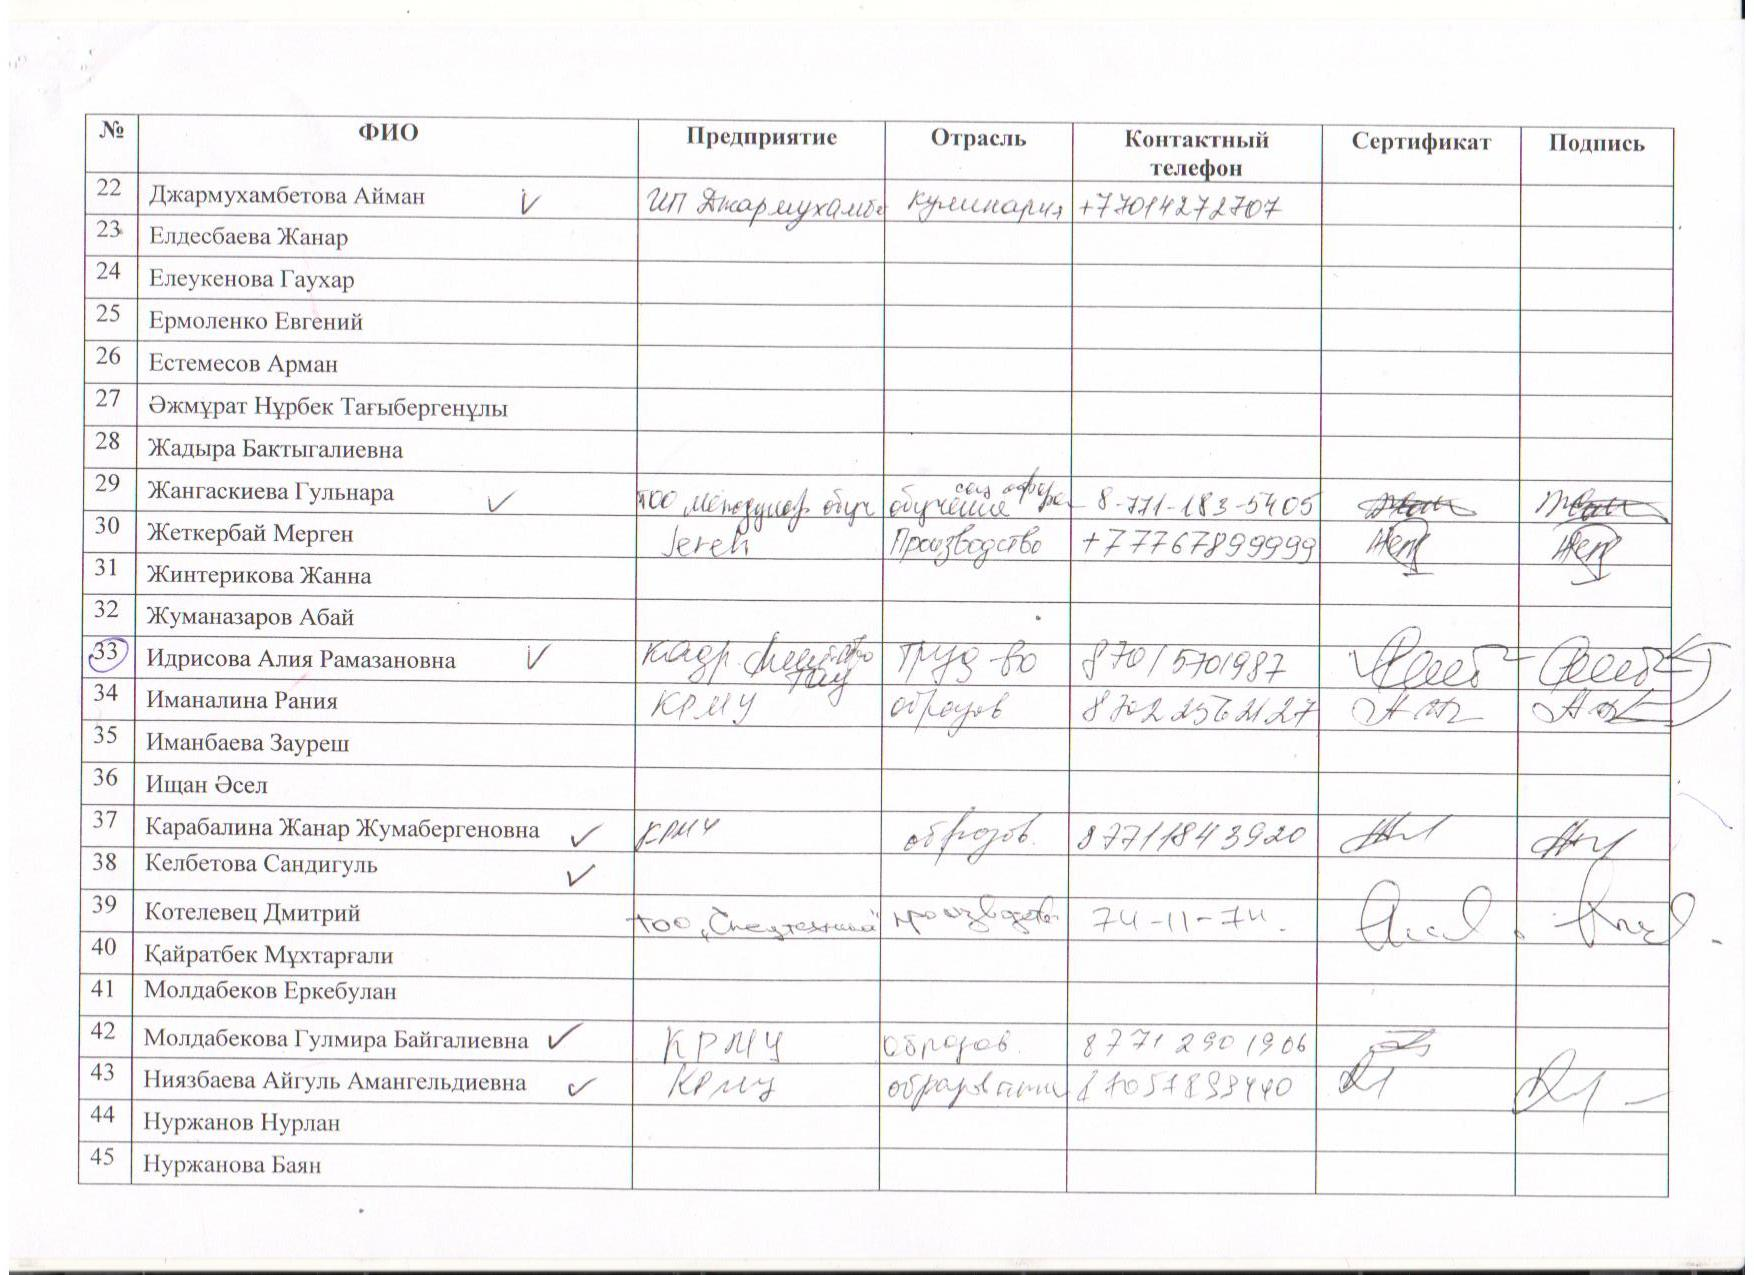 № ФИО Предприятие Отрасль Контактный телефон Сертификат Подпись
22 Джармухамбетова Айман ИП Джармухамбе Кулинария +77014272707
23 Елдесбаева Жанар
24 Елеукенова Гаухар
25 Ермоленко Евгений
26 Естемесов Арман
27 Әжмұрат Нұрбек Тағыбергенұлы
28 Жадыра Бактыгалиевна
29 Жангаскиева Гульнара ТОО обуч обучение 8-771-183-5405
30 Жеткербай Мерген Jereh Производство +77767899999
31 Жинтерикова Жанна
32 Жуманазаров Абай
33 Идрисова Алия Рамазановна кадр. труд-во 87015701987
34 Иманалина Рания КРМУ образов 87022562127
35 Иманбаева Зауреш
36 Ищан Әсел
37 Карабалина Жанар Жумабергеновна КРМУ образов. 87711843920
38 Келбетова Сандигуль
39 Котелевец Дмитрий ТОО производство 74-11-74.
40 Қайратбек Мұхтарғали
41 Молдабеков Еркебулан
42 Молдабекова Гулмира Байгалиевна КРМУ образов. 87712901906
43 Ниязбаева Айгуль Амангельдиевна КРМУ
44 Нуржанов Нурлан
45 Нуржанова Баян